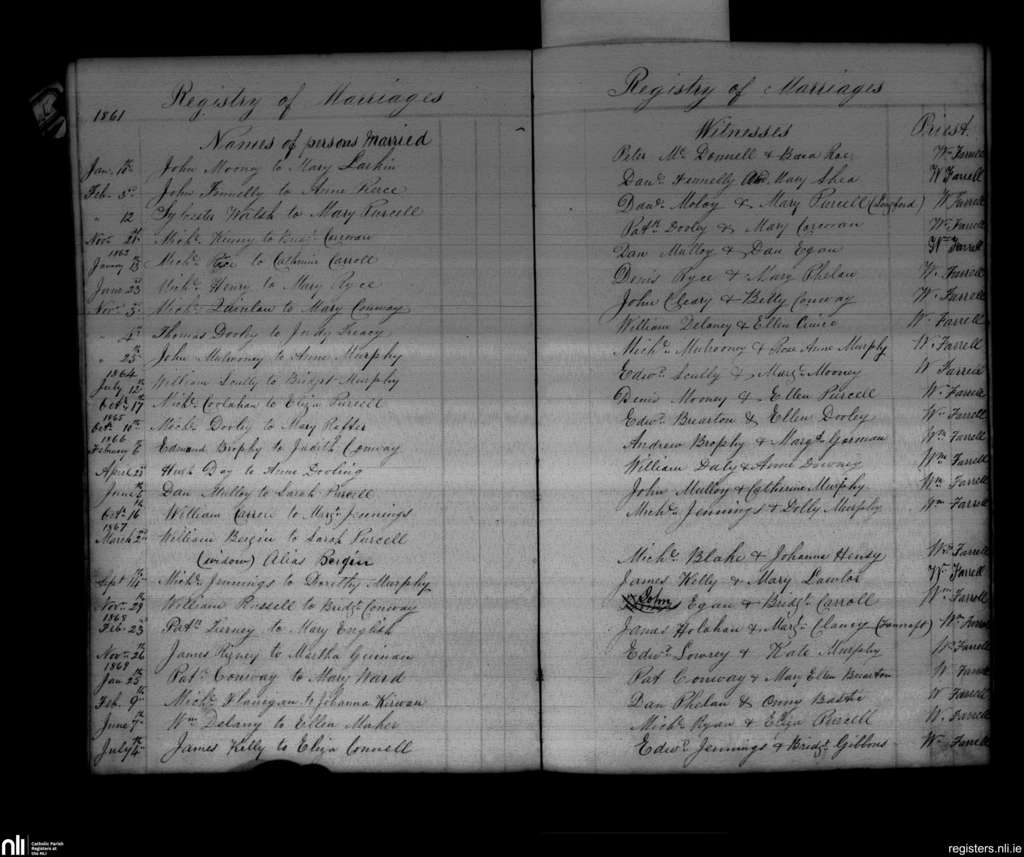 Registry of Marriages
1861
Names of persons Married
Jan. 15th John Mooney to Mary Larkin
Feb. 5th John Fennelly to Anne Pierce
" 12 Sylvester Walsh to Mary Purcell
Nov. 21 Michl. Kenny to Bridgt. Corcoran
1862
Janry 13th Michl. Rice to Catherine Carroll
June 23 Michl. Henry to Mary Ryce
Nov. 5th Michl. Quinlan to Mary Conway
" 4th Thomas Dooly to Judy Treacy
" 25th John Mulrooney to Anne Murphy
1864
July 12th William Scully to Bridget Murphy
Octr. 17th Michl. Coolahan to Eliza Purcell
1865
Oct. 10th Michl. Dooly to Mary Rafter
1866
February 6 Edmond Brophy to Judith Conway
April 23 Hugh Day to Anne Dooling
June Dan Mulloy to Sarah Purcell
Oct. 16th William Carroll to Margt. Jennings
1867
March 2nd William Bergin to Sarah Purcell
(widow) Alias Bergin
Sept 14th Michl. Jennings to Dorothy Murphy
Nov. 29 William Russell to Bridgt. Conway
1868
Feb. 23 Patk. Tierney to Mary English
Nov. 26th James Rigney to Martha Guinan
1869
Jan 25th Patk. Conway to Mary Ward
Feb. 9th Michl. Flanigan to Johanna Kirwan
June 7th Wm. Delany to Ellen Maher
July 4th James Kelly to Eliza Connell
Registry of Marriages
Witnesses Priest
Peter Mc. Donnell & Roe Wm. Farrell
Danl. Fennelly And Mary Shea W Farrell
Danl. Moloy & Mary Purcell (Longford) W Farrell
Patk. Dooley & Mary Corcoran Wm. Farrell
Dan Mulloy & Dan Egan Wm Farrell
Denis Ryce & Mary Phelan W. Farrell
John Cleary & Betty Conway W. Farrell
William Delaney & Ellen W. Farrell
Michl. Mulrooney & Rose Anne Murphy W. Farrell
Edwd. Scully & Margt. Mooney W Farrell
Denis Mooney & Ellen Purcell W. Farrell
Edwd. Brearton & Ellen Dooley Wm Farrell
Andrew Brophy & Margt. Gorman Wm Farrell
William Daly & Anne Downey Wm. Farrell
John Mulloy & Catherine Murphy Wm Farrell
Michl. Jennings & Dolly Murphy Wm Farrell
Michl. Blake & Johanna Henry Wm Farrell
James Kelly & Mary Lawlor Wm. Farrell
John Egan & Bridgt. Carroll Wm Farrell
James Holahan & Margt. Clancy Wm Farrell
Edwd. Lowrey & Kate Murphy Wm Farrell
Pat Conway & Mary Ellen Brearton Wm Farrell
Dan Phelan & W Farrell
Michl. Ryan & Eliza Purcell W. Farrell
Edwd. Jennings & Bridgt. Gibbons Wm Farrell
nli
Catholic Parish
Registers at
the NLI
registers.nli.ie